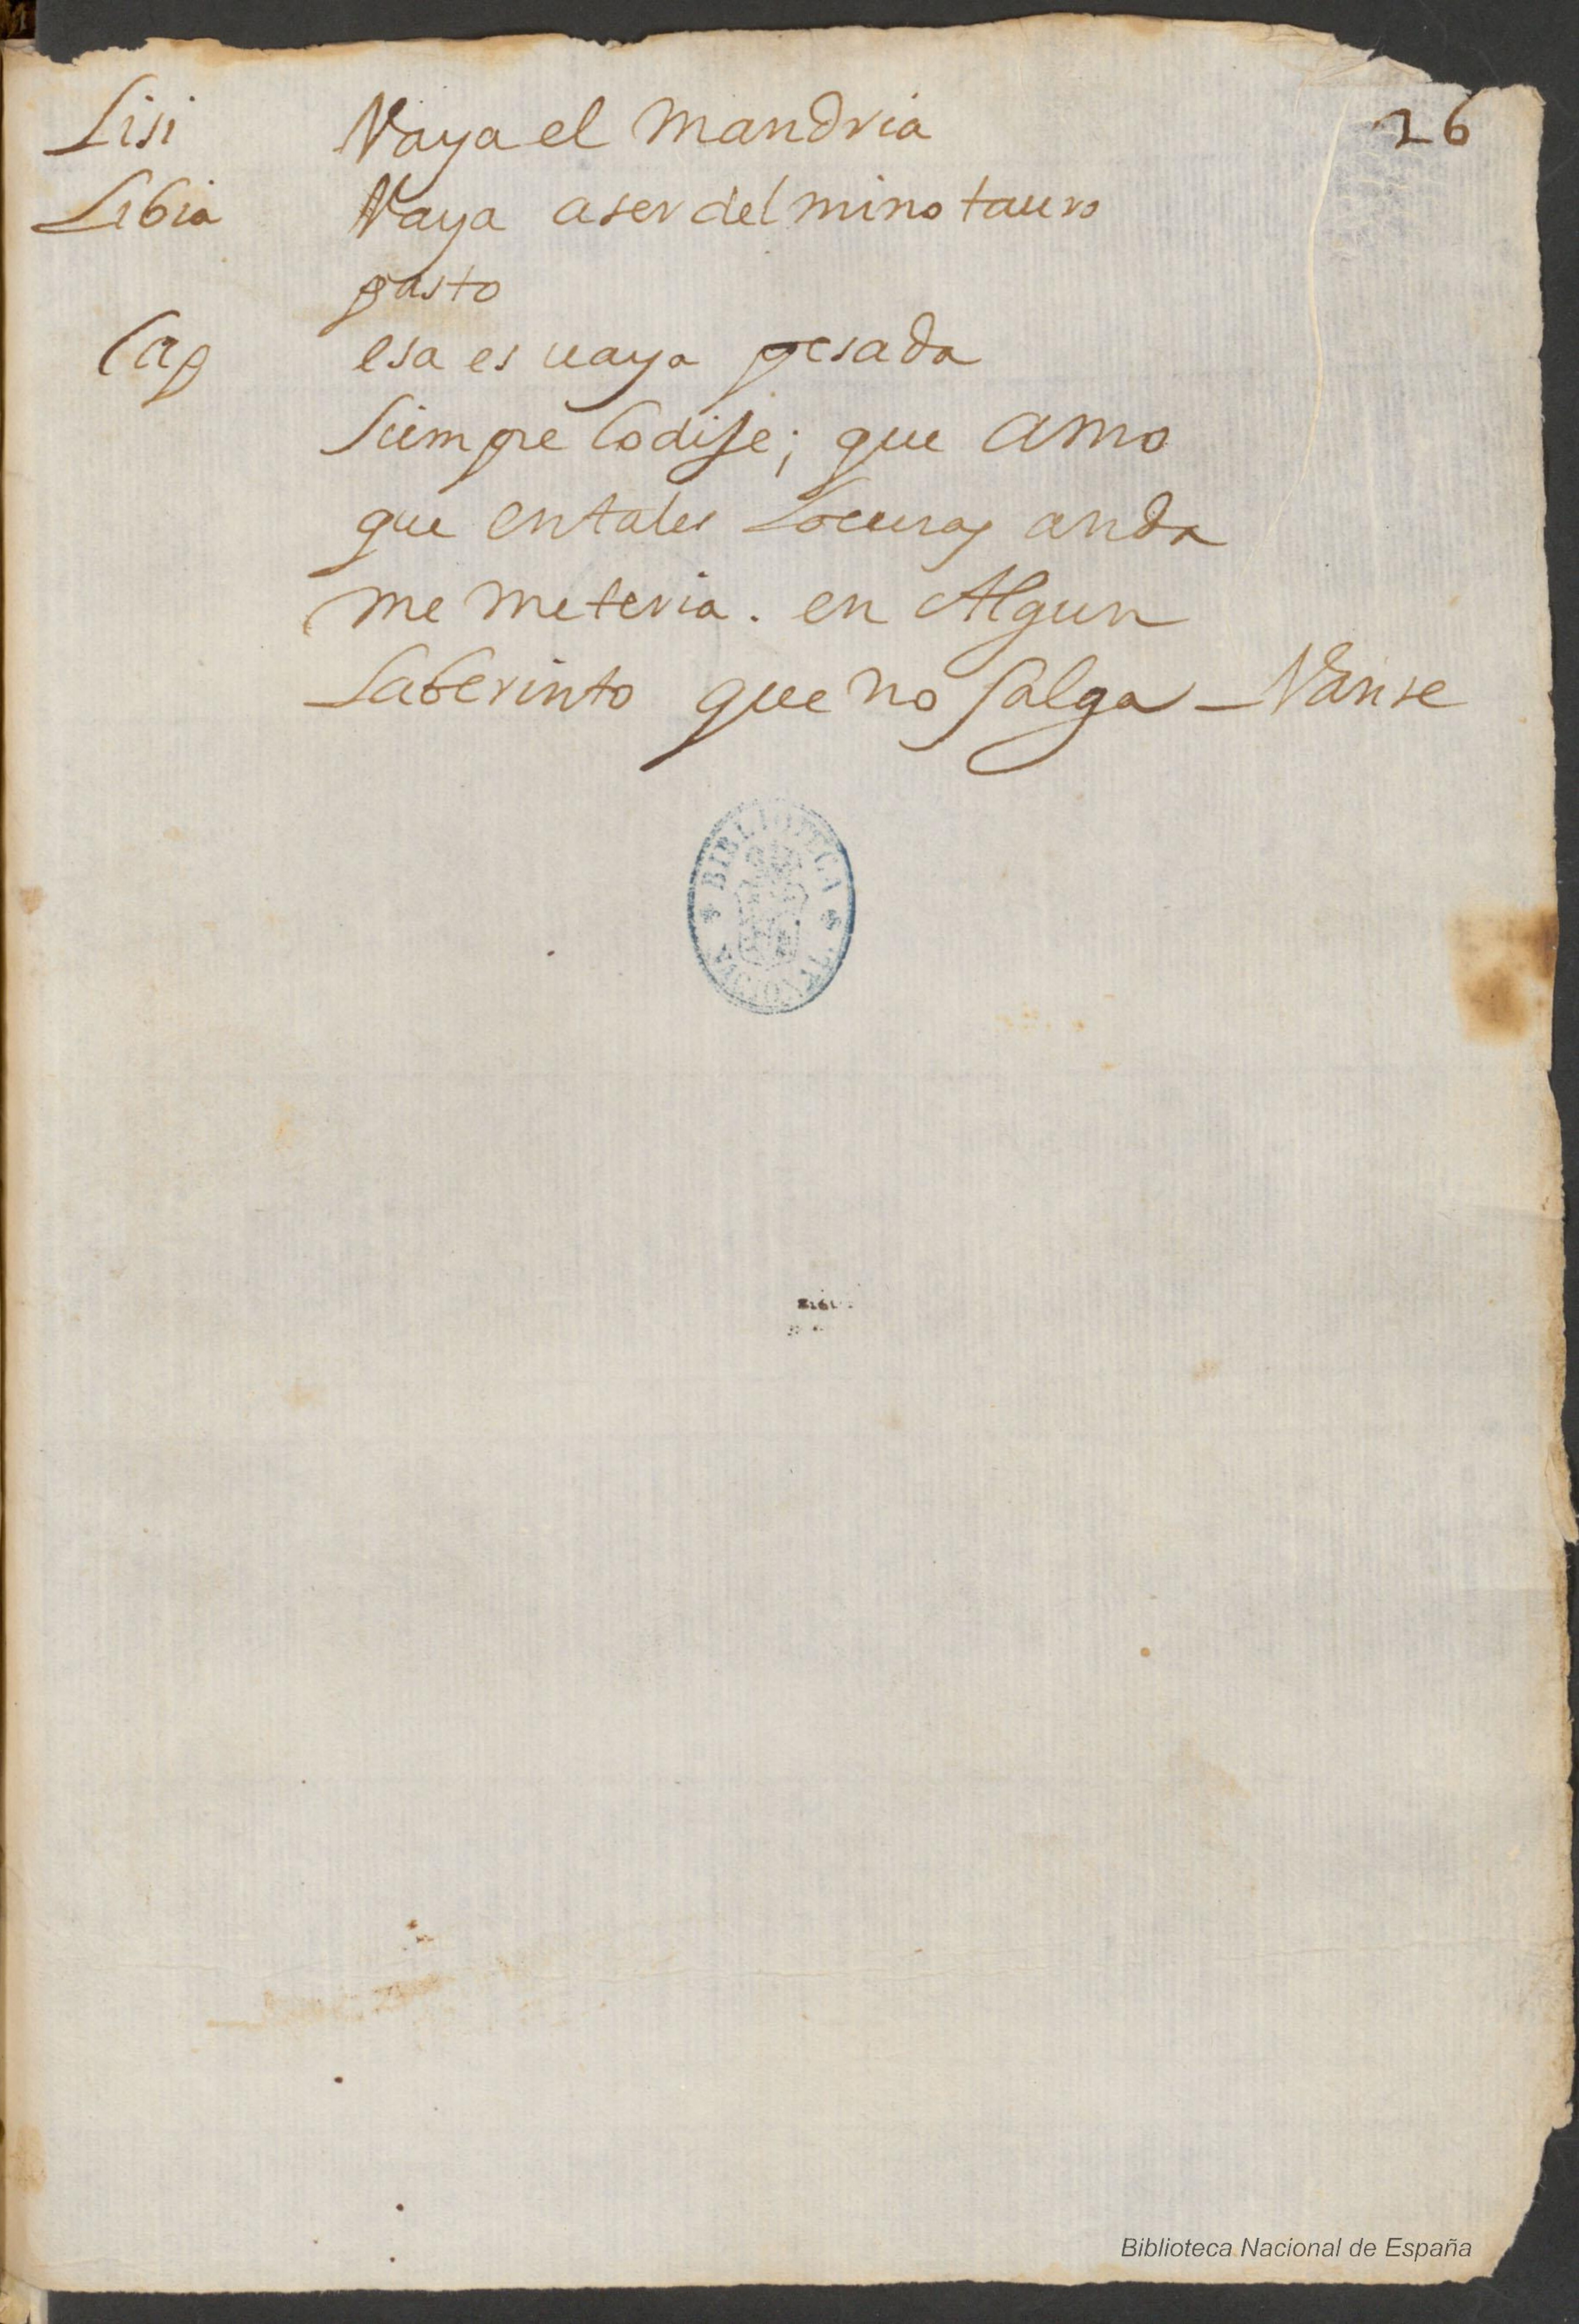 26
Lisi Vaya el mandria
Libia Vaya a ser del mino tauro
pasto
Cap esa es uaya pesada
Siempre lo dije; que amo
que en tales Locuras anda
me meteria. en Algun
Laberinto que no salga - Vanse
BIBLIOTECA NACIONAL
Biblioteca Nacional de España